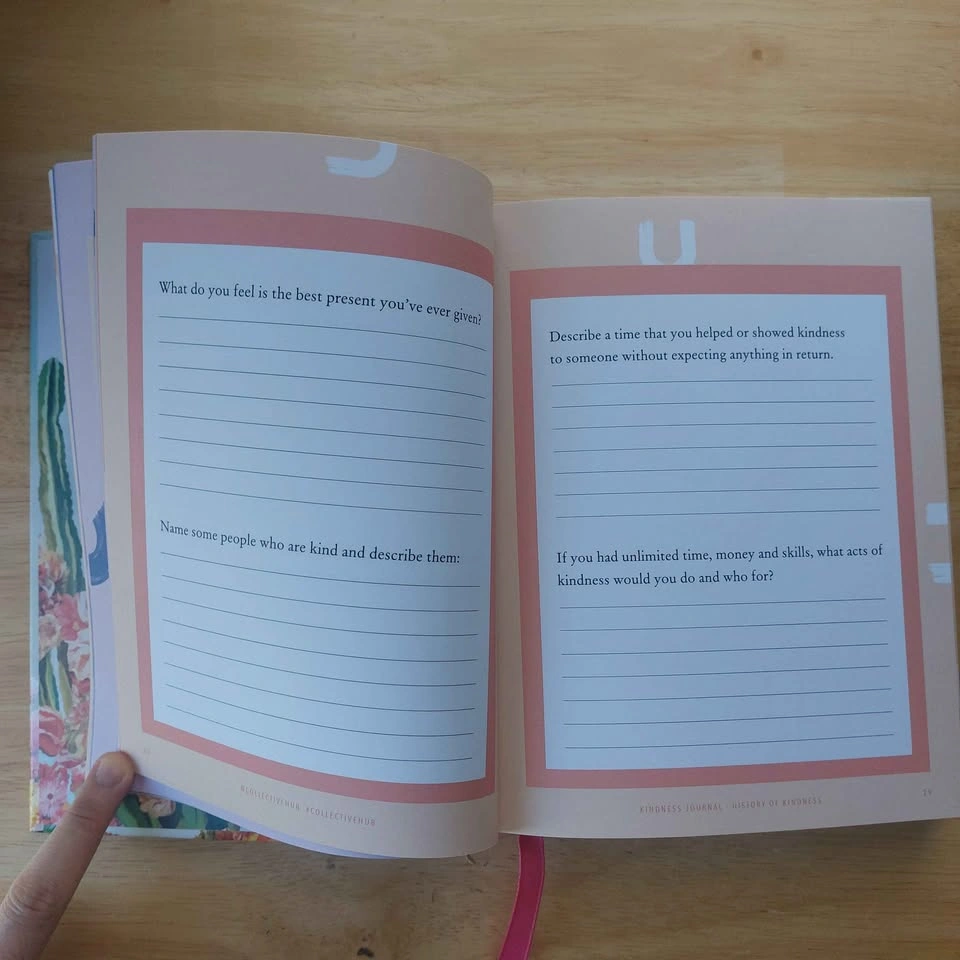 What do you feel is the best present you've ever given?
Name some people who are kind and describe them:
@COLLECTIVEHUB #COLLECTIVEHUB
U
Describe a time that you helped or showed kindness
to someone without expecting anything in return.
If you had unlimited time, money and skills, what acts of
kindness would you do and who for?
KINDNESS JOURNAL HISTORY OF KINDNESS
19